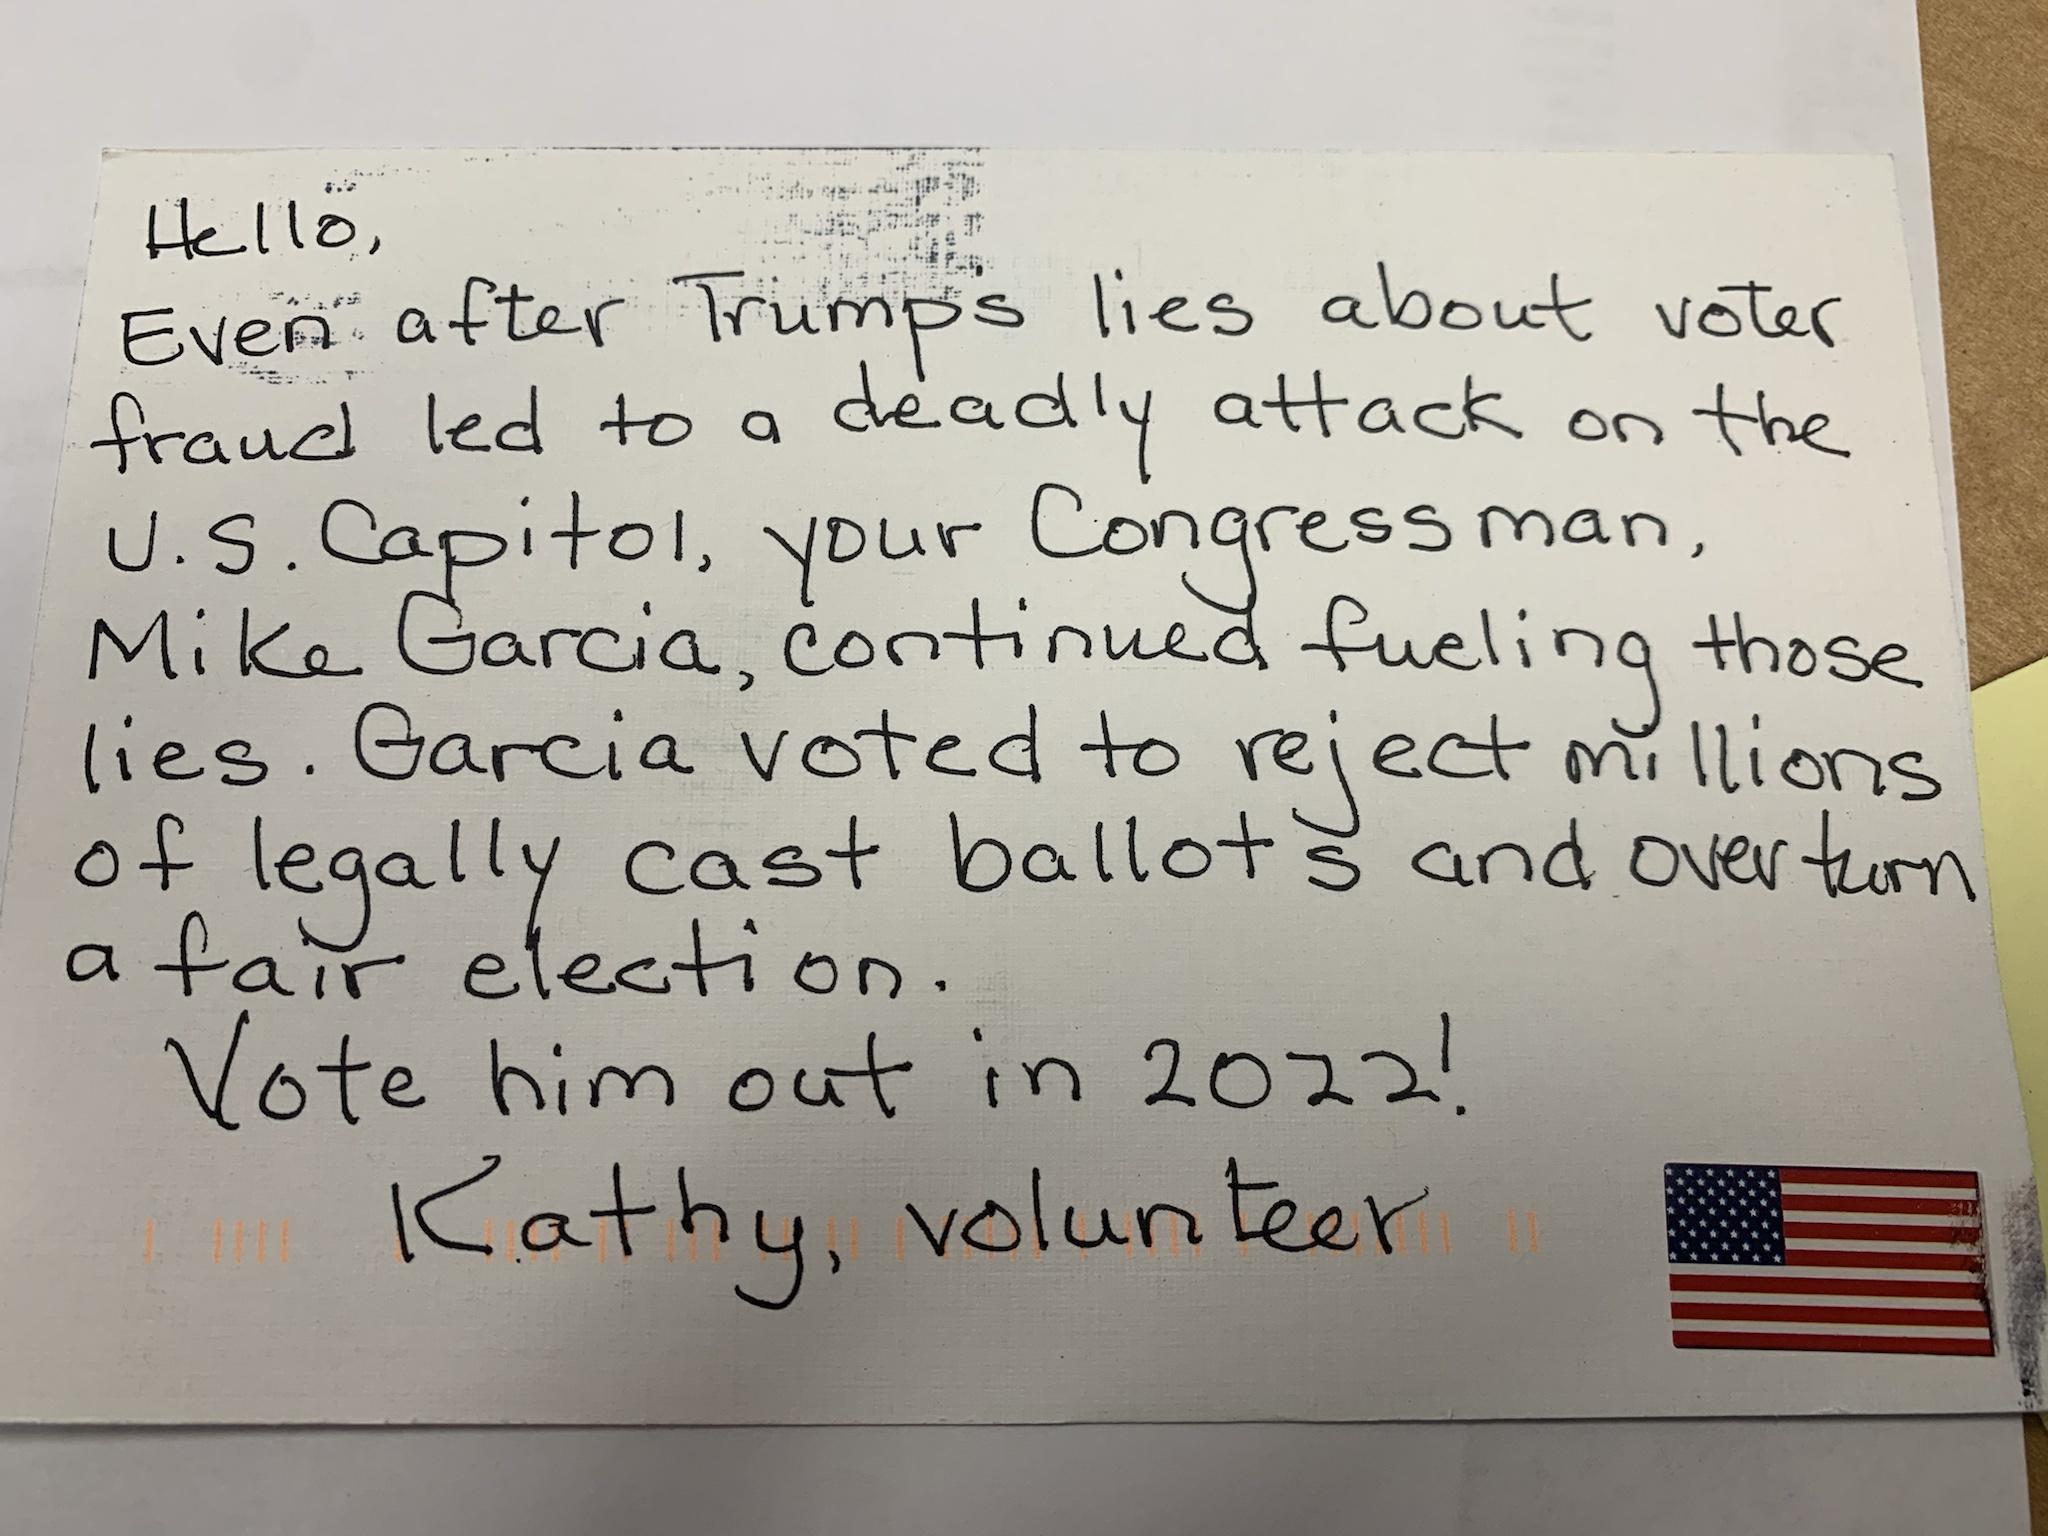 Hello,
Even after Trump's lies about voter
fraud led to a deadly attack on the
U.S. Capitol, your Congressman,
Mike Garcia, continued fueling those
lies. Garcia voted to reject millions
of legally cast ballots and overturn
a fair election.
Vote him out in 2022!
Kathy, volunteer